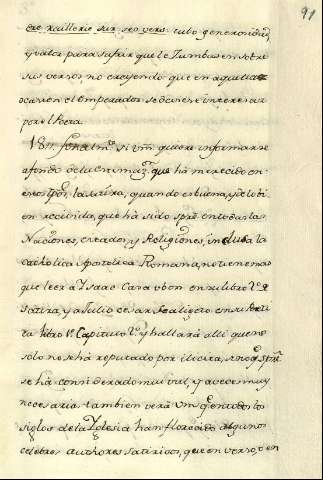 91
y valor para sufrir que le Zumbasen sobre
sus versos, no creyendo que en aquella
ocasion el Emperador se deviese interesar
por el Poeta.
18,, finalm.te si Vm. quiere informarse
afondo de la estimaz.n que hà merecido en
la satira, quando es buena, y lo bi
en recivida, que há sido spre. en todas las
Naciones, creador, y Religiones, inclusa la
Catholica Apostolica Romana, no tiene mas
que leer a Ysaac Casaubon en su libro 2.º
Satira, y a Julio Cesar Scaligero en su
libro 1.º Capitulo y hallará alli que no
solo no se há reputado por ilicita, sino q.e spre
se há considerado mui util, y a veces muy
necesaria: tambien verá Vm. q.e en todos los
siglos de la Yglesia han florecido algunos
celebres authores satiricos, que en verso, o en